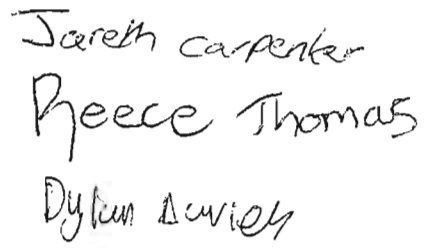 Jareth Carpenter
Reece Thomas
Dylan Davies